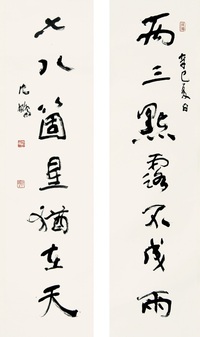 兩三點露不成雨
辛巳夏日
七八箇星猶在天
沈鵬